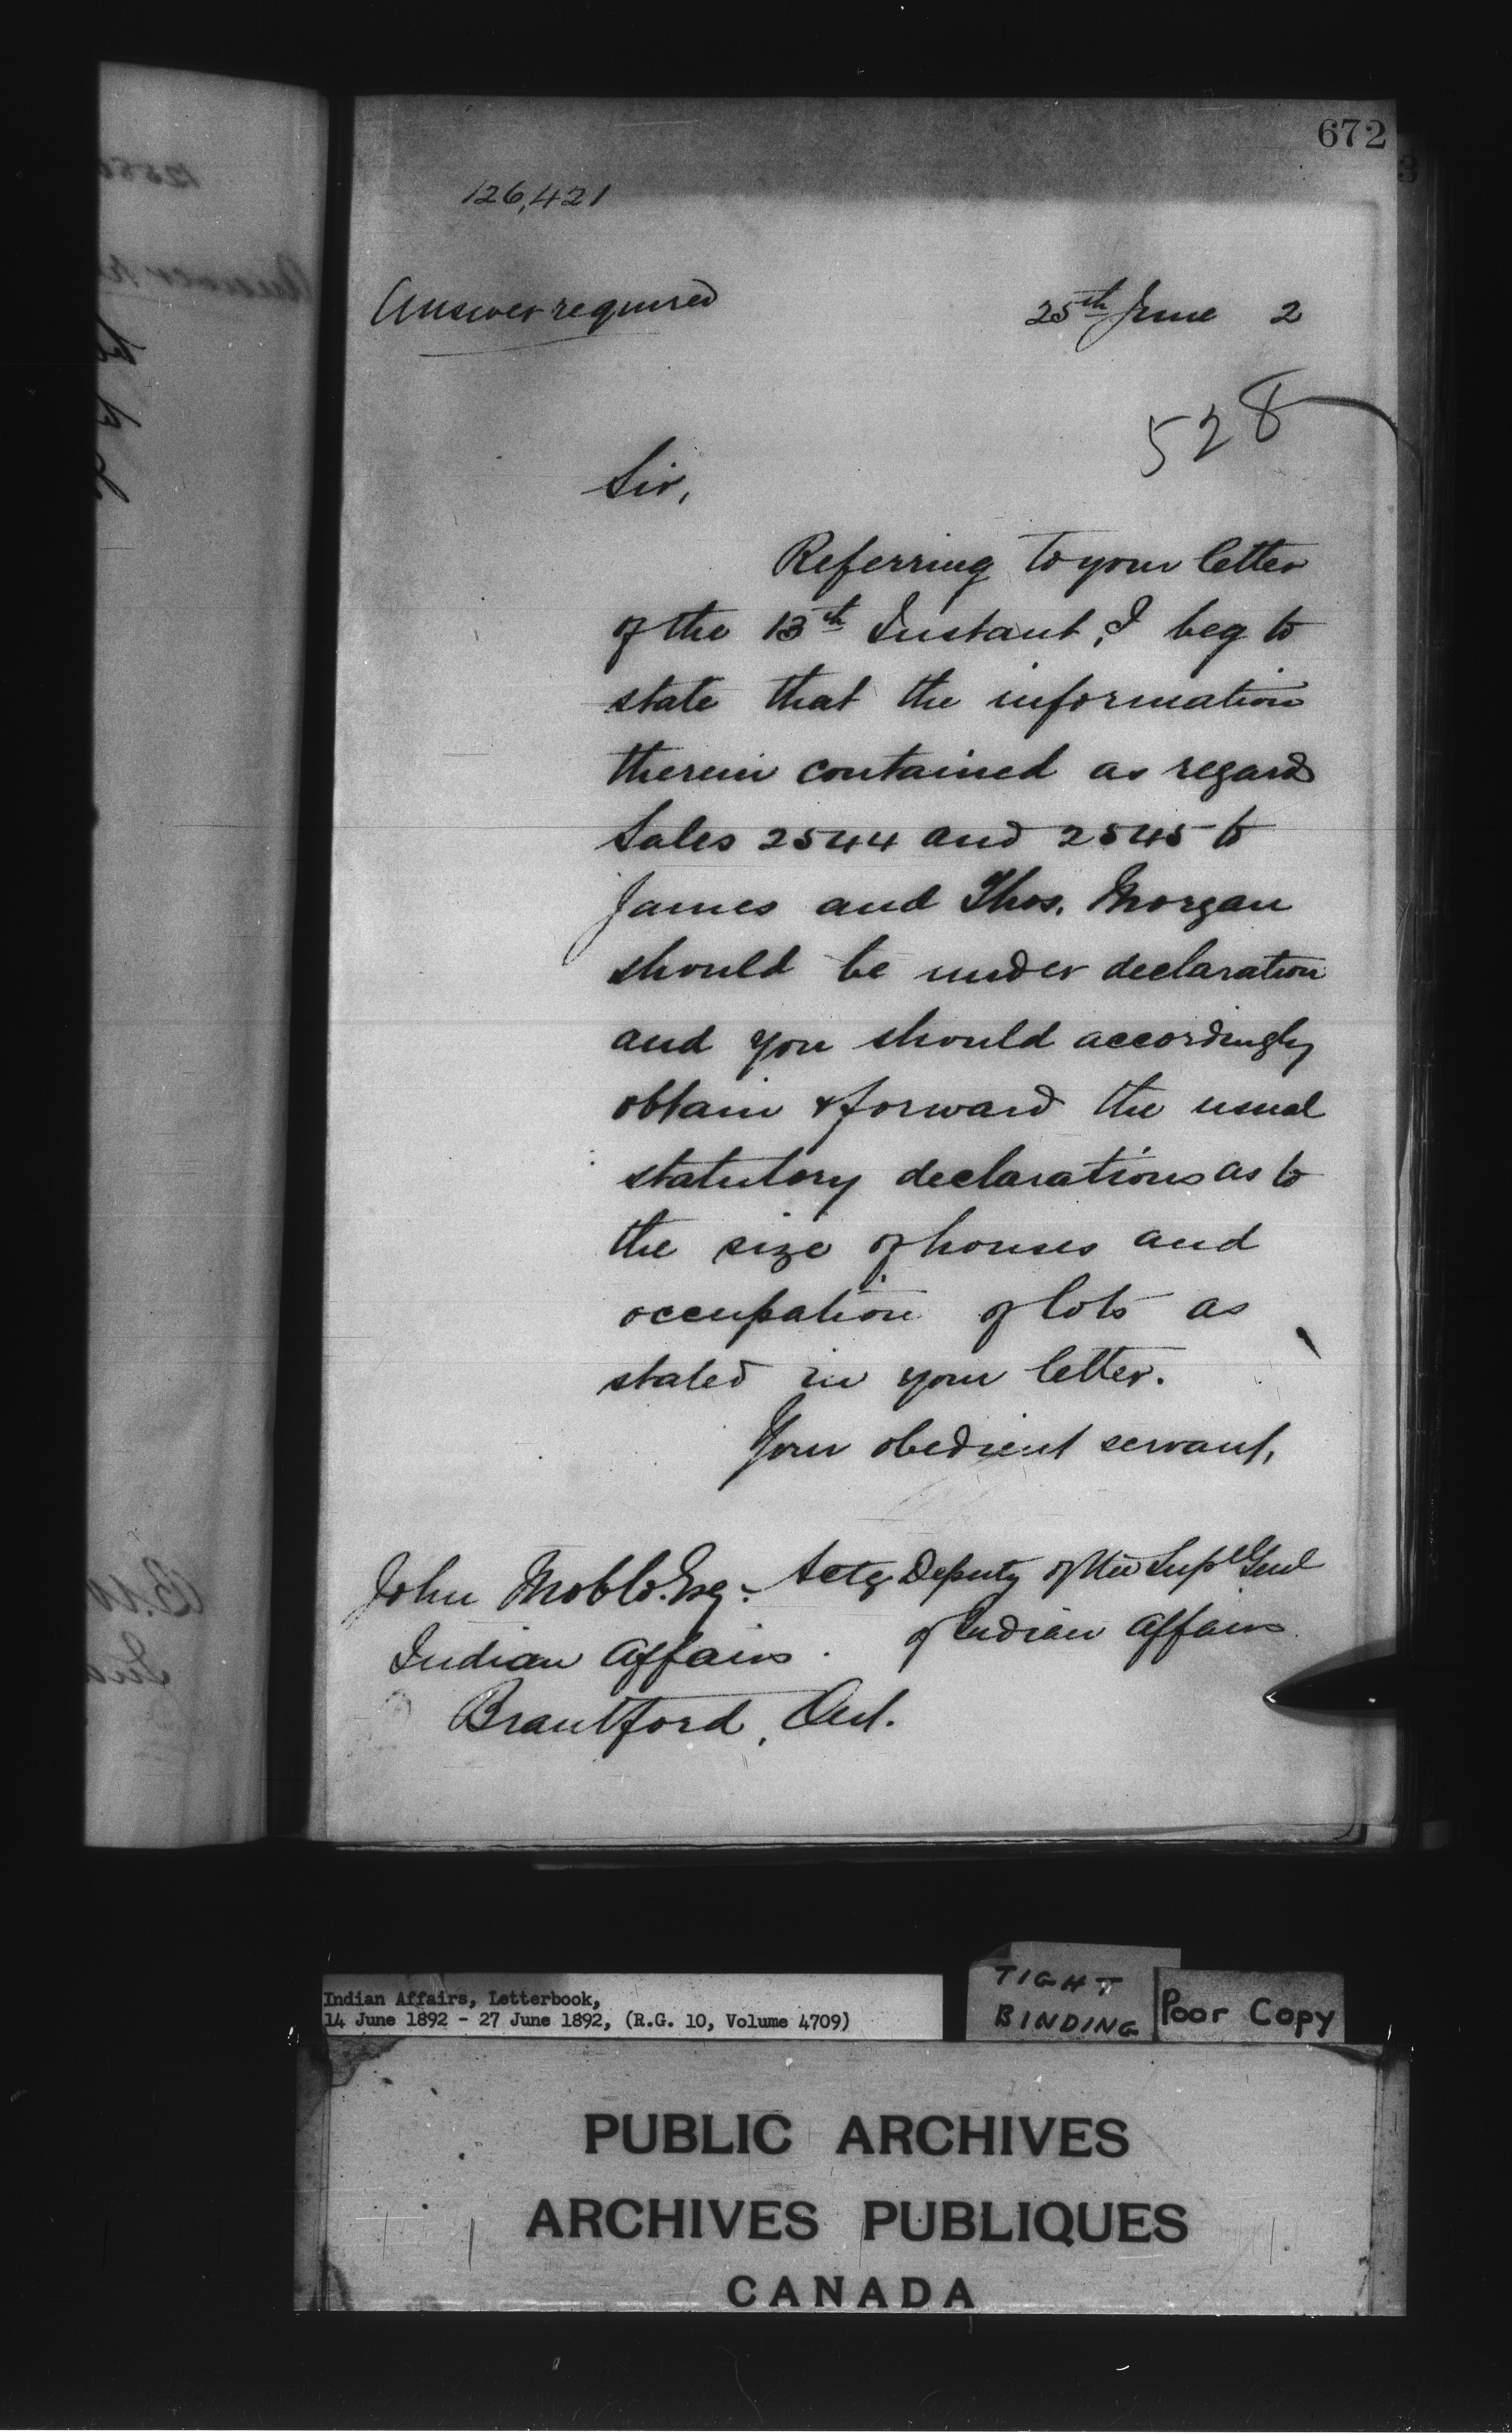 672
126,421
Answer required
25th June 2
528
Sir,
Referring to your letter
of the 13th Instant, I beg to
state that the information
therein contained as regards
Sales 2544 and 2545 to
James and Thos. Morgan
should be under declaration
and you should accordingly
obtain & forward the usual
statutory declarations as to
the size of houses and
occupation of lots as
stated in your letter.
Your obedient servant,
Actg Deputy of the Supt Genl
of Indian Affairs
John Esq.
Indian Affairs.
Brantford, Ont.
Indian Affairs, Letterbook,
14 June 1892 - 27 June 1892, (R.G. 10, Volume 4709)
TIGHT
BINDING
Poor Copy
PUBLIC ARCHIVES
ARCHIVES PUBLIQUES
CANADA